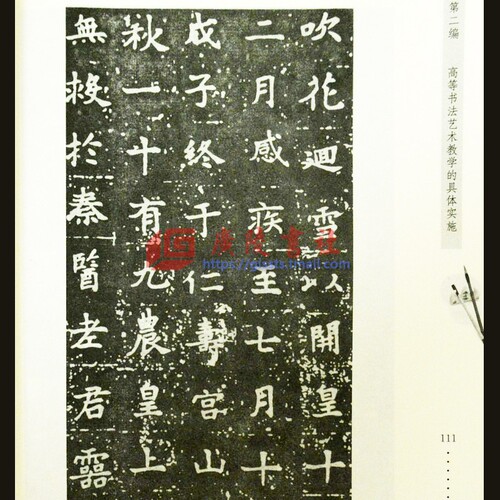 吹花迴雪以開皇十
二月感疾至七月十
戊子終于仁壽宮山
秋一十有九農皇上
無救於秦醫老君靈
第二编 高等书法艺术教学的具体实施
111
廣陵書社